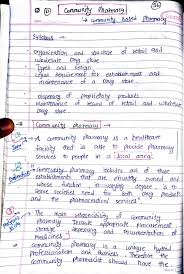 Community Pharmacy
→ Community based Pharmacy
Syllabus →
organization and structure of retail and
wholesale drug store
Types and design
Legal requirement for establishment and
maintenance of a drug store
Dispensing of proprietary products
Maintenance of record of retail and wholesale
drug store
Community pharmacy →
A community pharmacy is a healthcare
facility that is able to provide pharmacy
services to people in a local area.
Community pharmacy include all of those
establishments that are privately owned and
whose function in varying degree is to
serve societies need for both drug products
and the pharmaceutical services
The main responsibility of community
pharmacy include appropriate procurement
storage, dispensing and documentation of
medicines.
Community pharmacy is a unique hybrid
professionalism and business. Therefore the
community pharmacist should have the